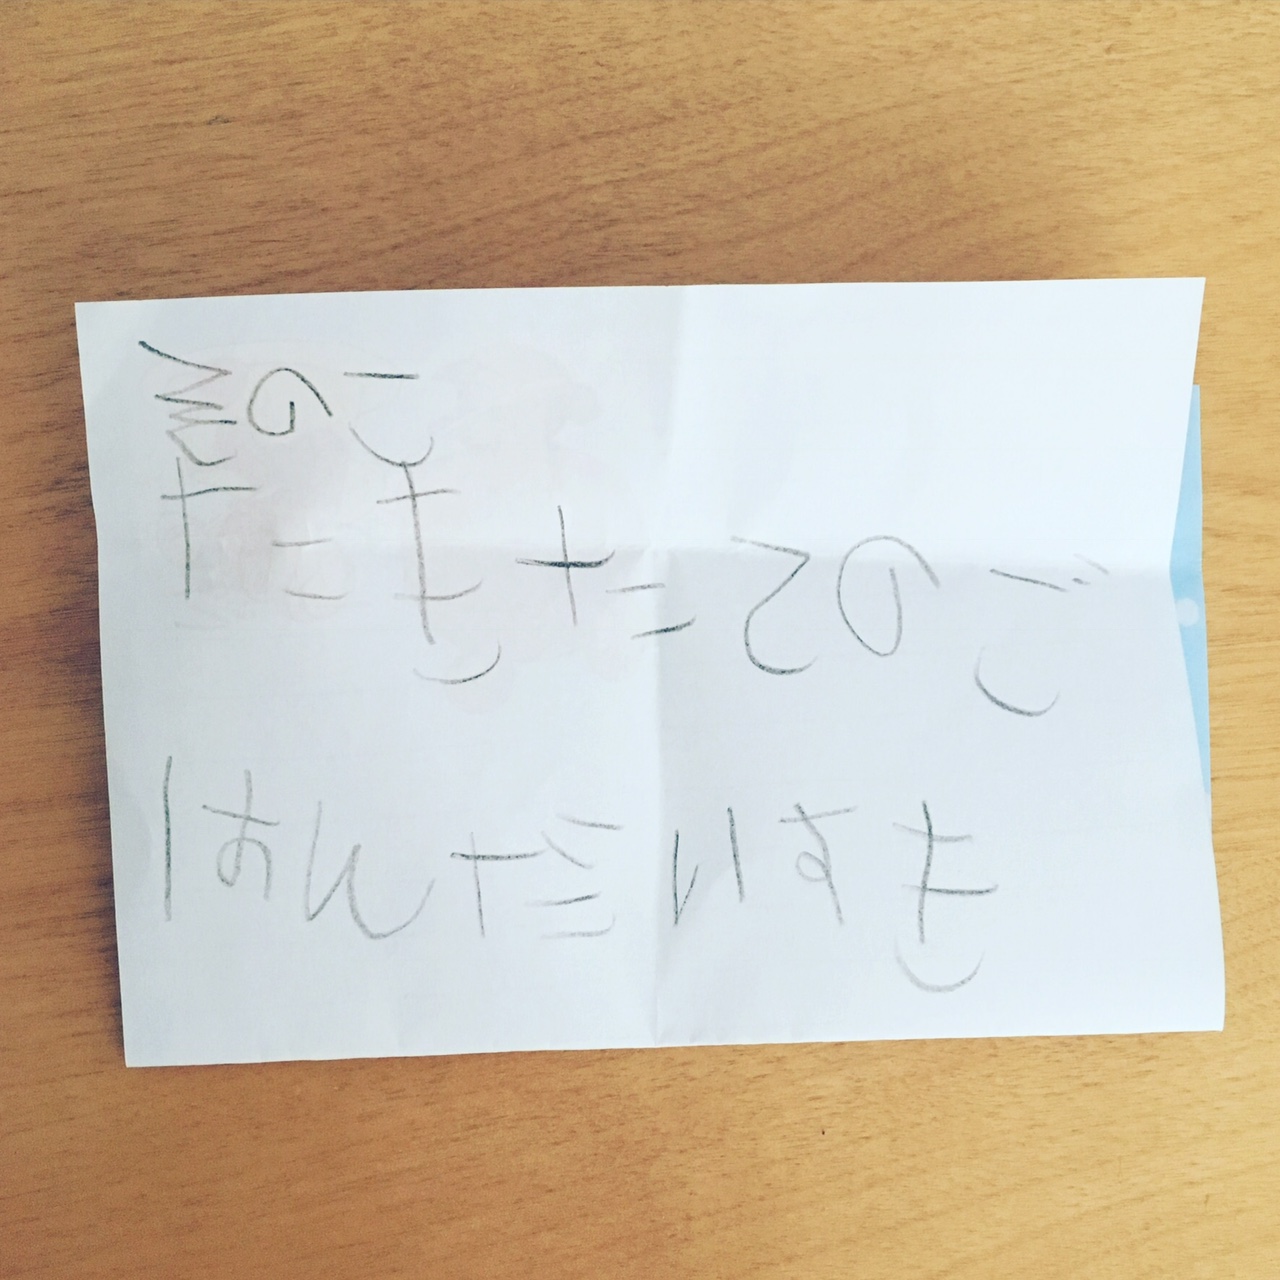 のこ
たきたてのご
はんだいすき